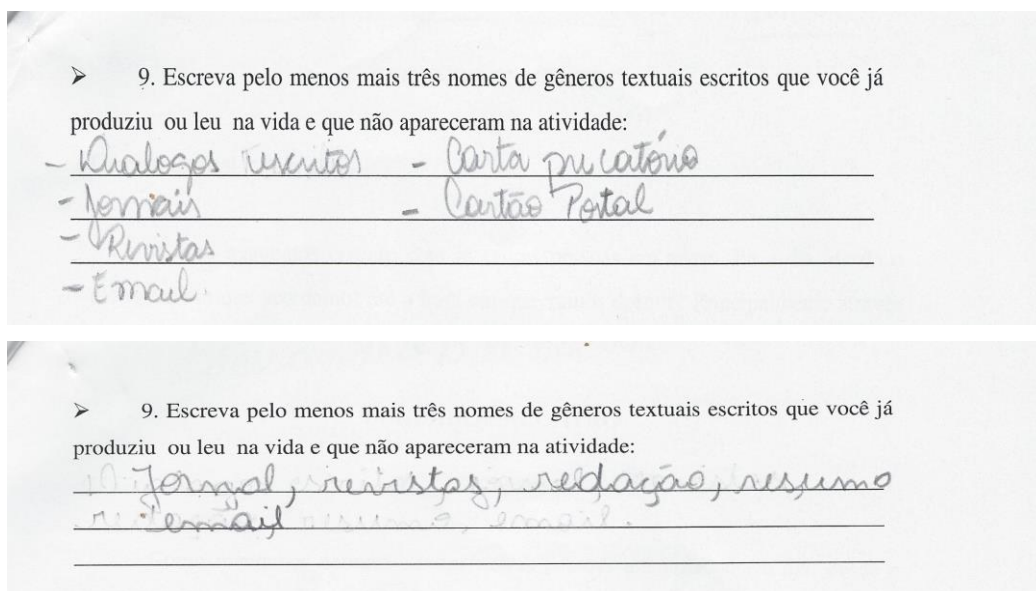 ➤ 9. Escreva pelo menos mais três nomes de gêneros textuais escritos que você já
produziu ou leu na vida e que não apareceram na atividade:
- Dialogos escritos - Carta precatório
- Jornais - Cartão Postal
- Revistas
- Email.
➤ 9. Escreva pelo menos mais três nomes de gêneros textuais escritos que você já
produziu ou leu na vida e que não apareceram na atividade:
Jornal, revistas, redação, resumo
email